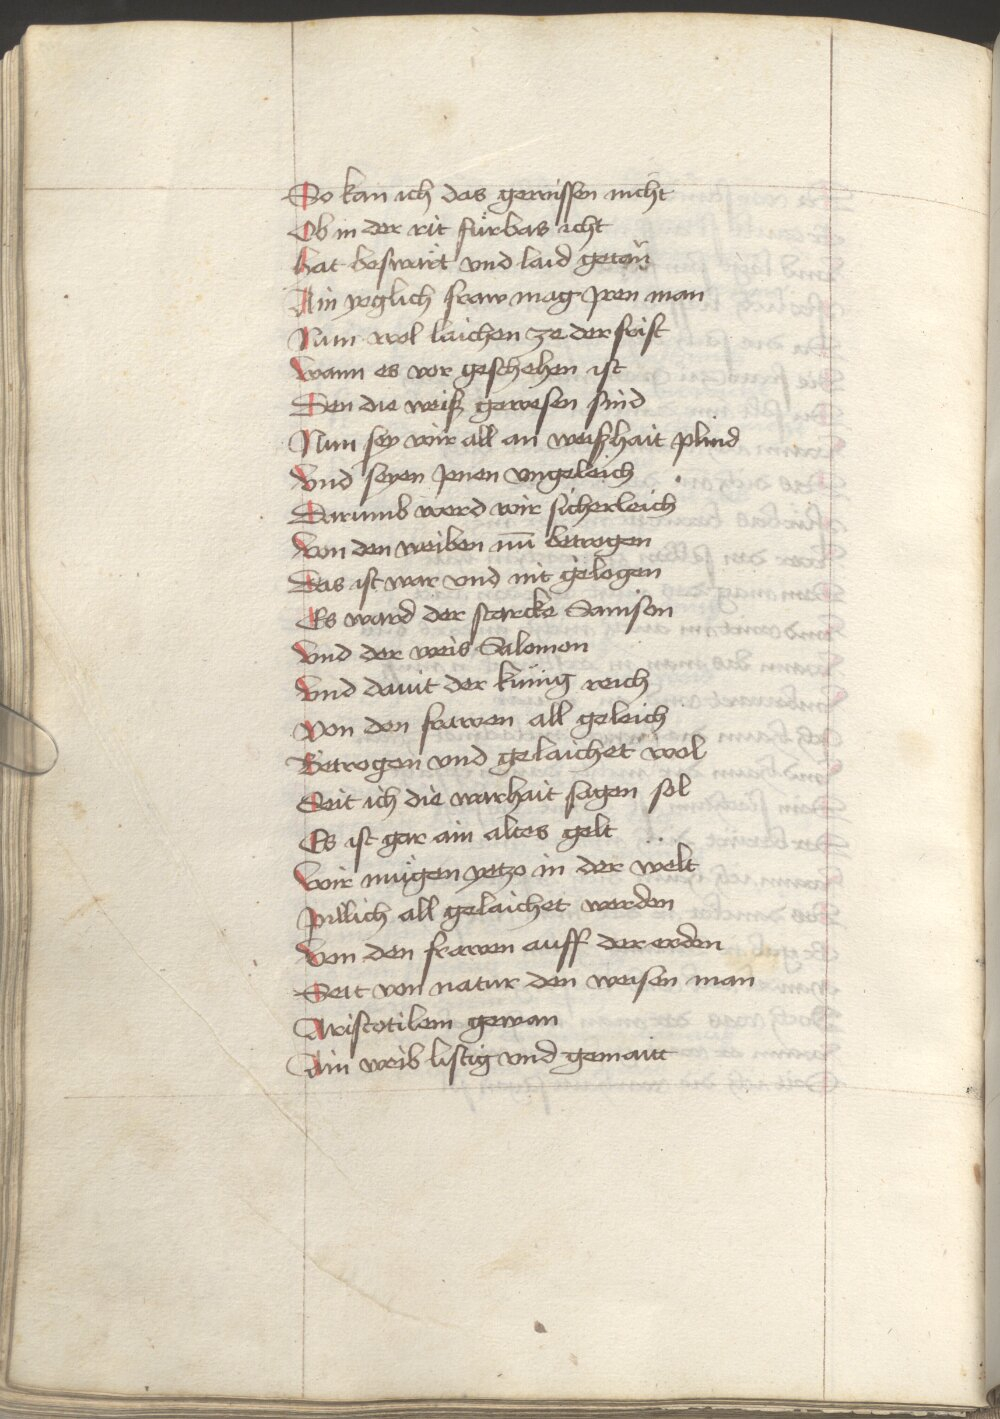 So kan ich das gewissen nicht
Ob in der rit fürbas icht
hat beswärt vnd laid geton̄
Ain yeglich fraw mag jren man
Nun wol laichen ze der frist
wann es vor geschehen ist
Den die weiß gewesen sind
Nun sey wir all an weißhait plind
vnd seyen jenen vngeleich
Darumb werd wir sicherleich
von den weiben nū betrogen
Das ist war vnd nit gelogen
Es ward der starcke Samson
vnd der weis Salomon
vnd dauit der künig reich
von den frawen all geleich
Betrogen vnd gelaichet wol
Seit ich die warhait sagen sol
Es ist gar ain altes gelt
wir mügen yetzo in der welt
pillich all gelaichet werden
von den frawen auff der erden
Seit von natur den weisen man
Aristotilem gewan
Ain weib listig vnd gemaitt